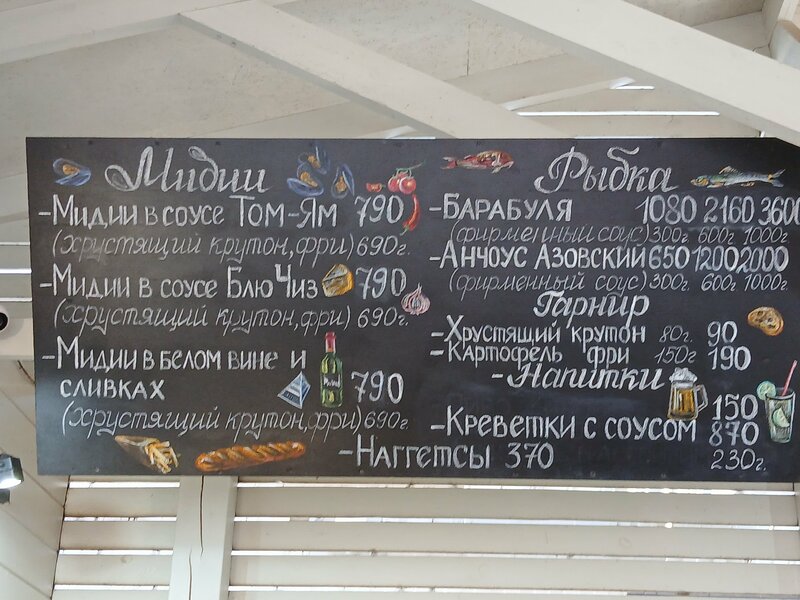 Мидии
-Мидии в соусе Том-Ям 790
(хрустящий крутон, фри) 690г.
-Мидии в соусе Блю Чиз 790
(хрустящий крутон, фри) 690г.
-Мидии в белом вине и
сливках 790
(хрустящий крутон, фри) 690г.
Рыбка
-Барабуля 1080 2160 3600
(фирменный соус) 300г. 600г. 1000г.
-Анчоус Азовский 650 1200 2000
(фирменный соус) 300г. 600г. 1000г.
Гарнир
-Хрустящий крутон 80г. 90
-Картофель фри 150г 190
-Напитки 150
-Креветки с соусом 870
230г.
-Наггетсы 370